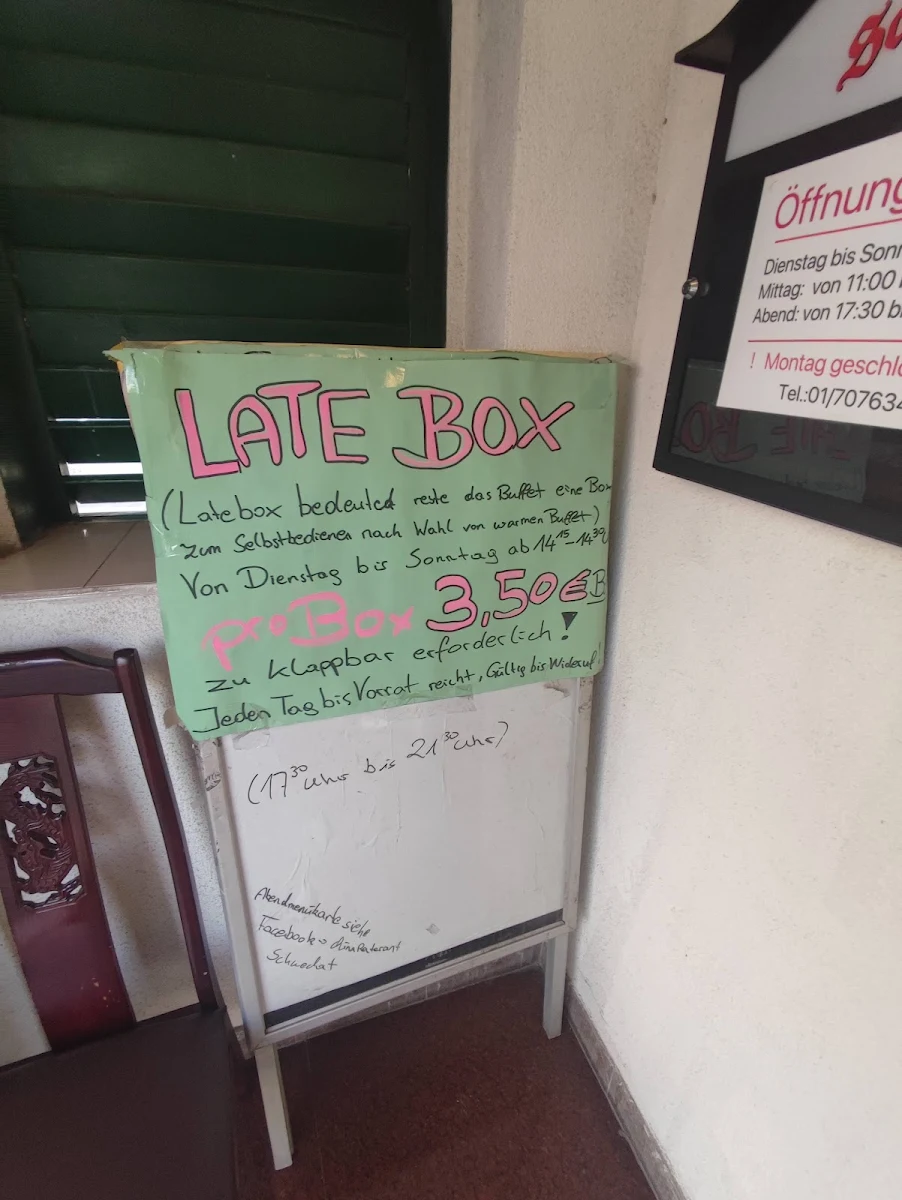 LATE BOX
(Latebox bedeuted reste das Buffet eine Box
zum Selbstbedienen nach Wahl von warmen Buffet)
Von Dienstag bis Sonntag ab 14 15 - 14 30
pro Box 3,50 € B
zu klappbar erforderlich!
Jeden Tag bis Vorrat reicht, Gültig bis Widerruf!
(17 30 Uhr bis 21 30 Uhr)
Abendmenükarte siehe
Facebook
Schwechat
Öffnung
Dienstag bis Sonn
Mittag: von 11:00
Abend: von 17:30 b
! Montag geschlo
Tel.:01/707634